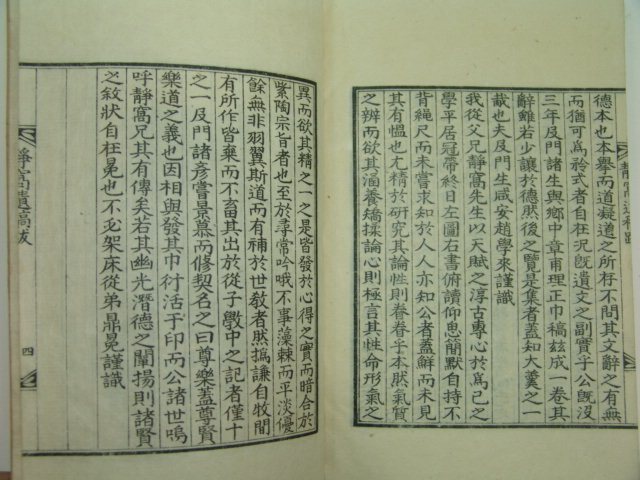 德本也本擧而道凝道之所存不問其文辭之有無
而猶可爲矜式者自在况旣遺文之副實乎公旣沒
三年及門諸生與鄕中章甫理正巾稿玆成一卷其
辭雖若少讓於德然後之覽是集者蓋知大羹之一
胾也夫及門生咸安趙學來謹識
我從父兄靜窩先生以天賦之淳古專心於爲己之
學平居冠帶終日左圖右書俯讀仰思簡默自持不
背繩尺而未嘗求知於人人亦知公者蓋鮮而未見
其有慍也尤精於研究其論性則眷眷乎本然氣質
之辨而欲其涵養矯揉論心則極言其性命形氣之
異而欲其精之一之是皆發於心得之實而暗合於
紫陶宗旨者也至於尋常吟哦不事藻棘而平淡優
餘無非羽翼斯道而有補於世敎者然撝謙自牧間
有所作皆棄而不畜其出於從子斅中之記者僅十
之一及門諸彥嘗景慕而修契名之曰尊樂蓋尊賢
樂道之義也因相與發其巾衍活于印而公諸世嗚
呼靜窩兄其有傳矣若其幽光潛德之闡揚則諸賢
之敘狀自在晃也不必架床從弟鼎晃謹識
靜窩遺稿跋
四